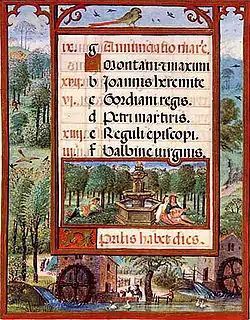 ix. g Annunciatio marie,
Montani+maximi
xvii. b Joannis heremite
vi. c Gordiani regis.
d Petri martiris.
xiiii. e Reguli episcopi.
iii. f Balbine virginis.
prilis habet dies.